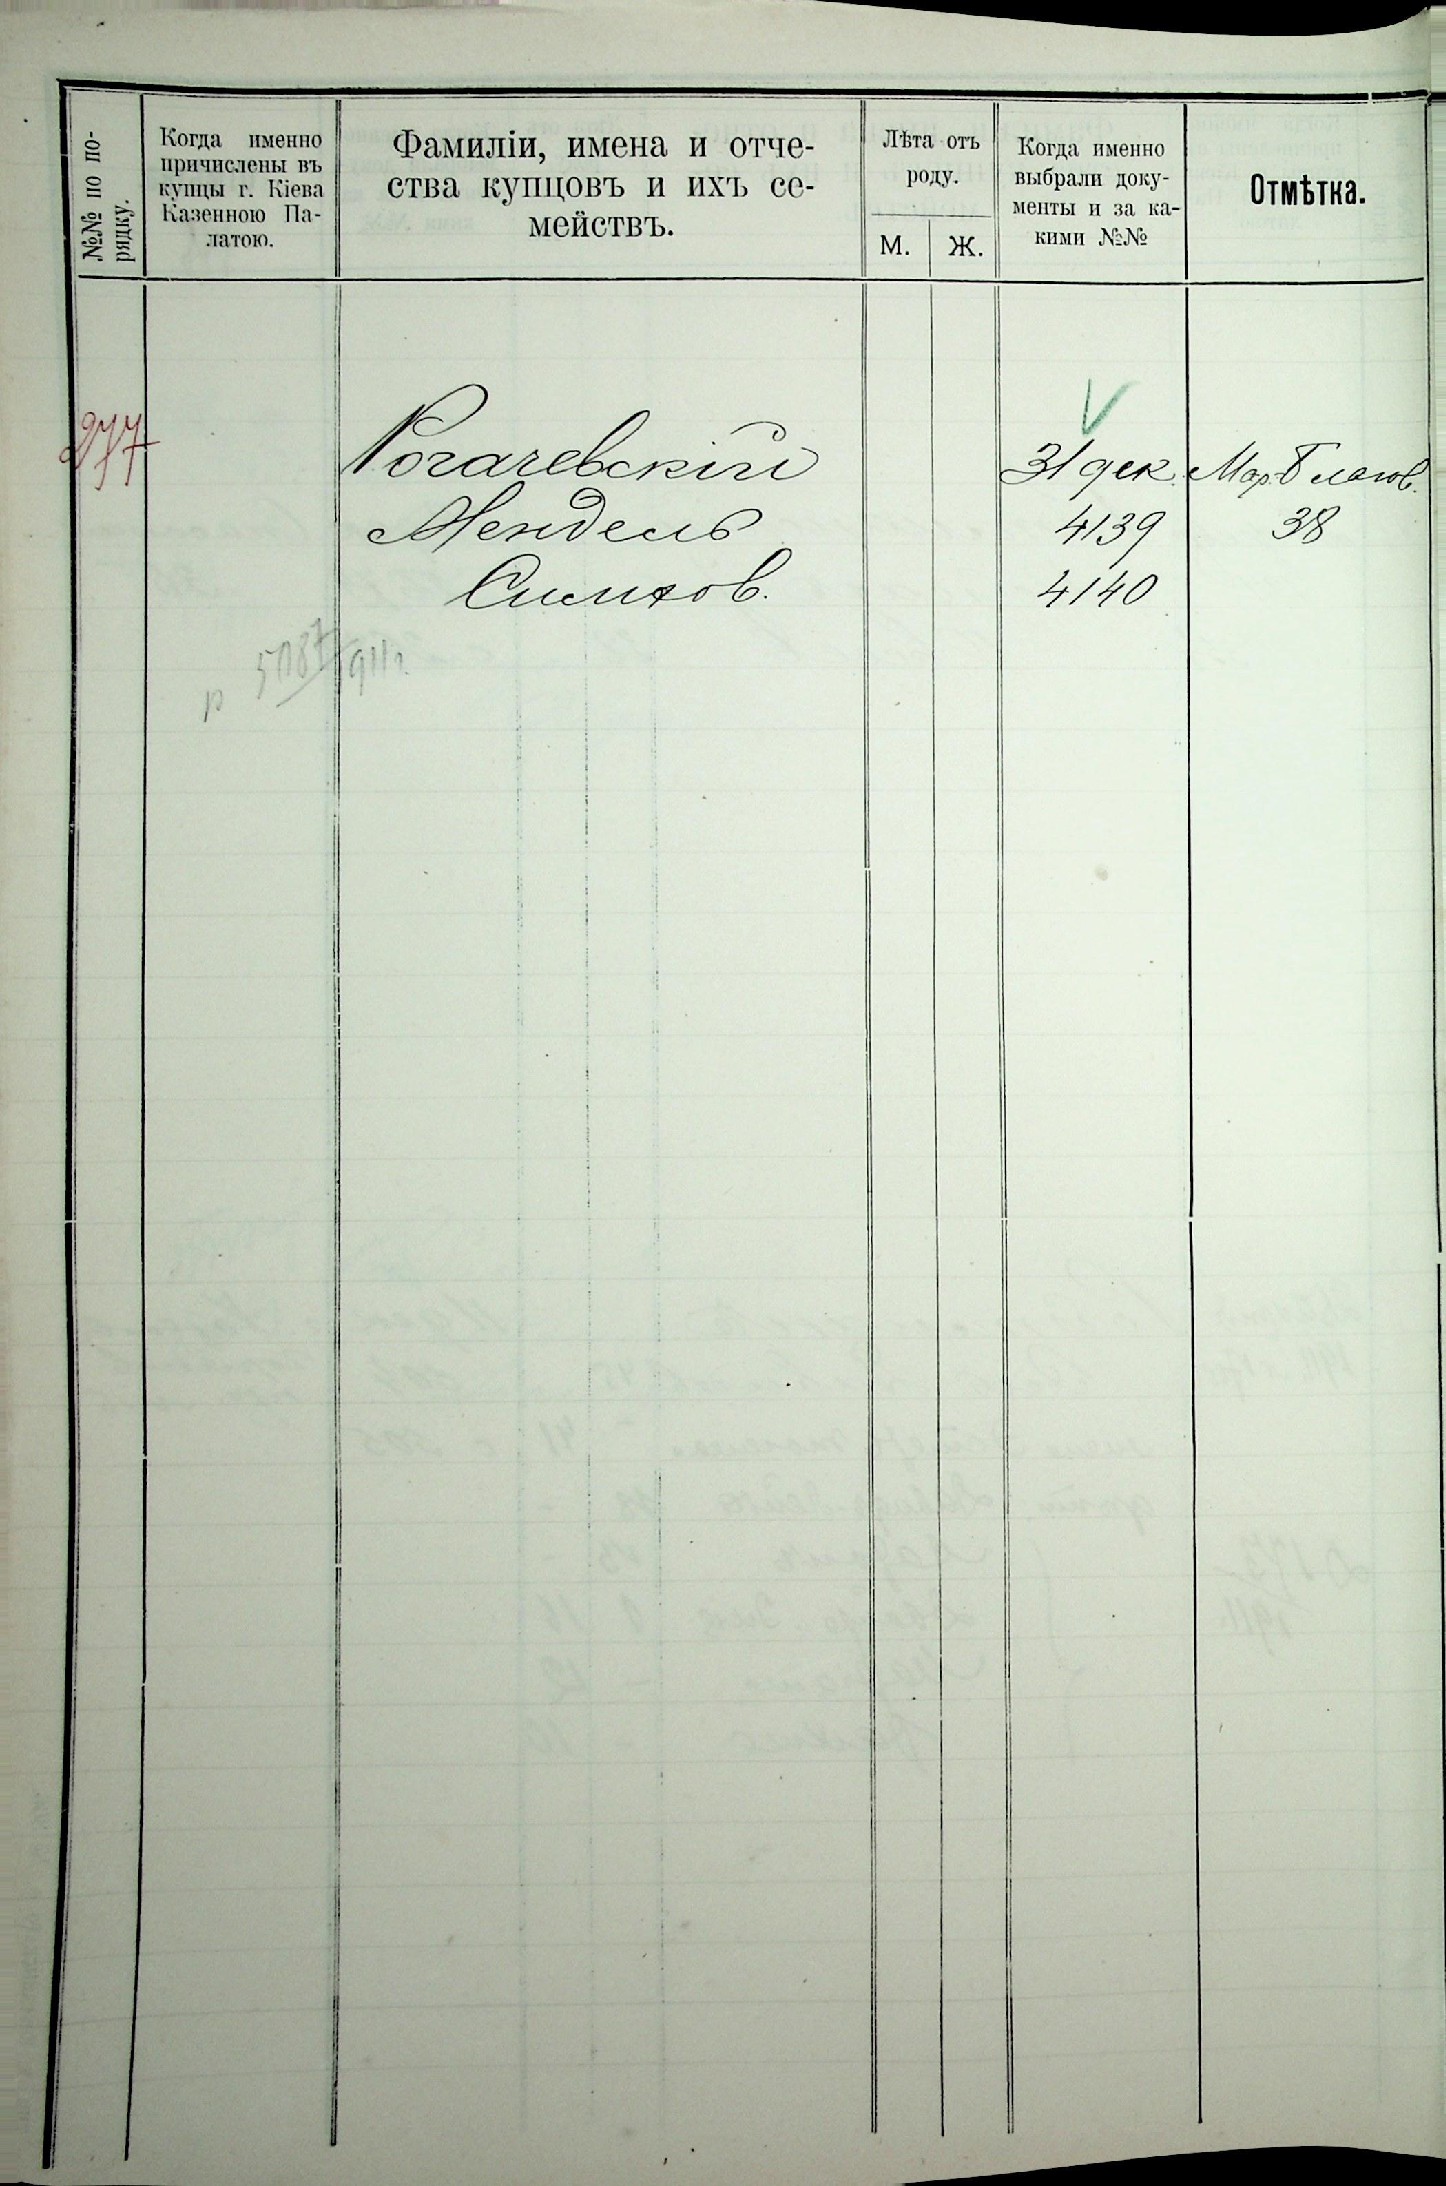 №№ по по-
рядку.
Когда именно
причислены въ
купцы г. Кіева
Казенною Па-
латою.
Фамиліи, имена и отче-
ства купцовъ и ихъ се-
мействъ.
Лѣта отъ
роду.
М.
Ж.
Когда именно
выбрали доку-
менты и за ка-
кими №№
Отмѣтка.
277
Рогачевскій
Мендель
Симхов.
31 дек.
4139
4140
Мар. Благов.
38
р 5187/911 г.